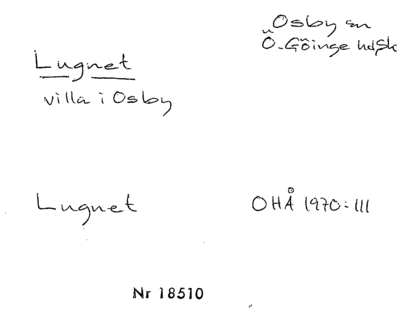 Osby sn
Ö. Göinge hdsk
Lugnet
villa i Osby
Lugnet
OHÅ 1970: 111
Nr 18510